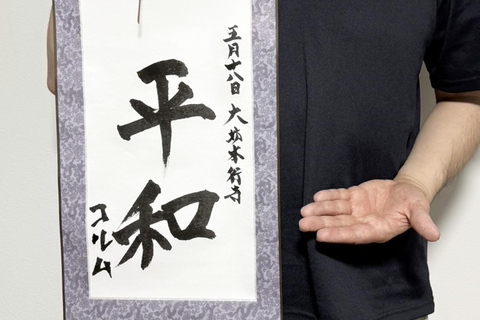 五月十八日 大坊本行寺
平和
コルム